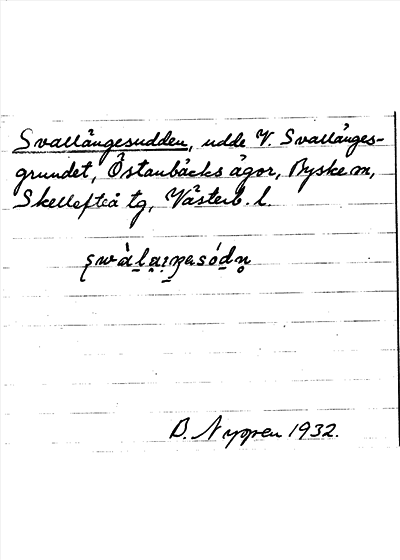 Svallångesudden, udde V. Svallånges-
grundet, Östanbäcks ägor, Byske m,
Skellefteå tg, Västerb. l.
B. Nygren 1932.